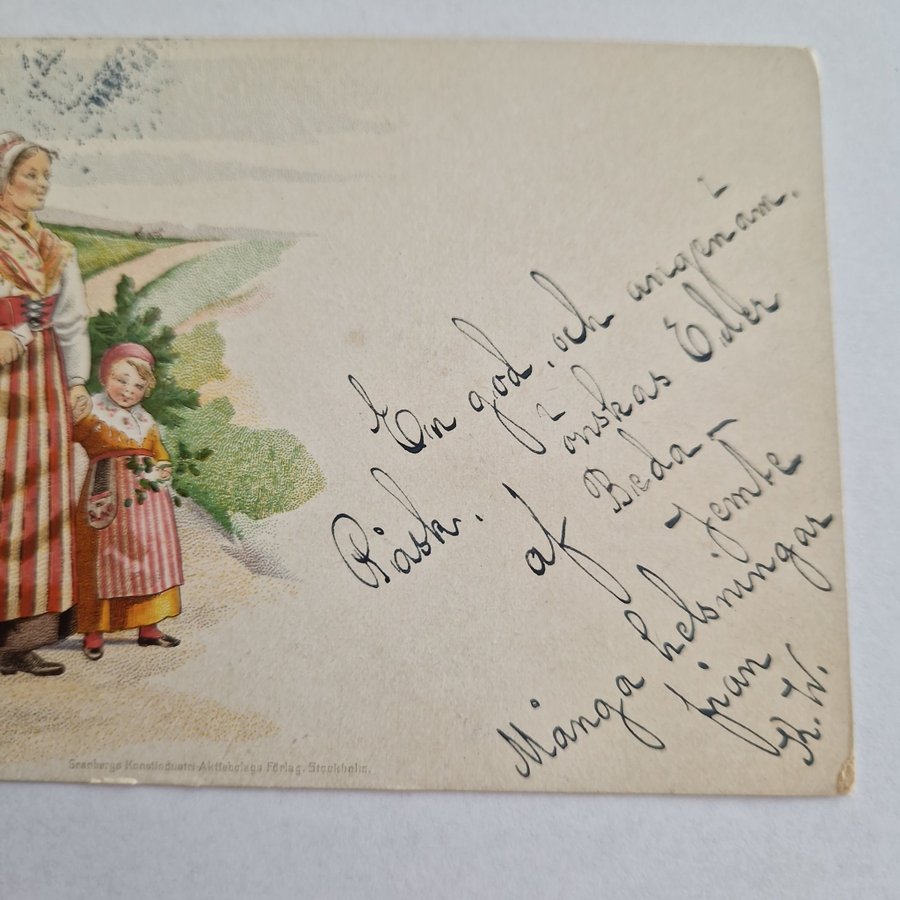 En god, och angenäm.
Påsk. önskas Eder
af Beda
Jemte
Många helsningar
från
K. W.
Granbergs Konstindustri-Aktiebolags Förlag. Stockholm.